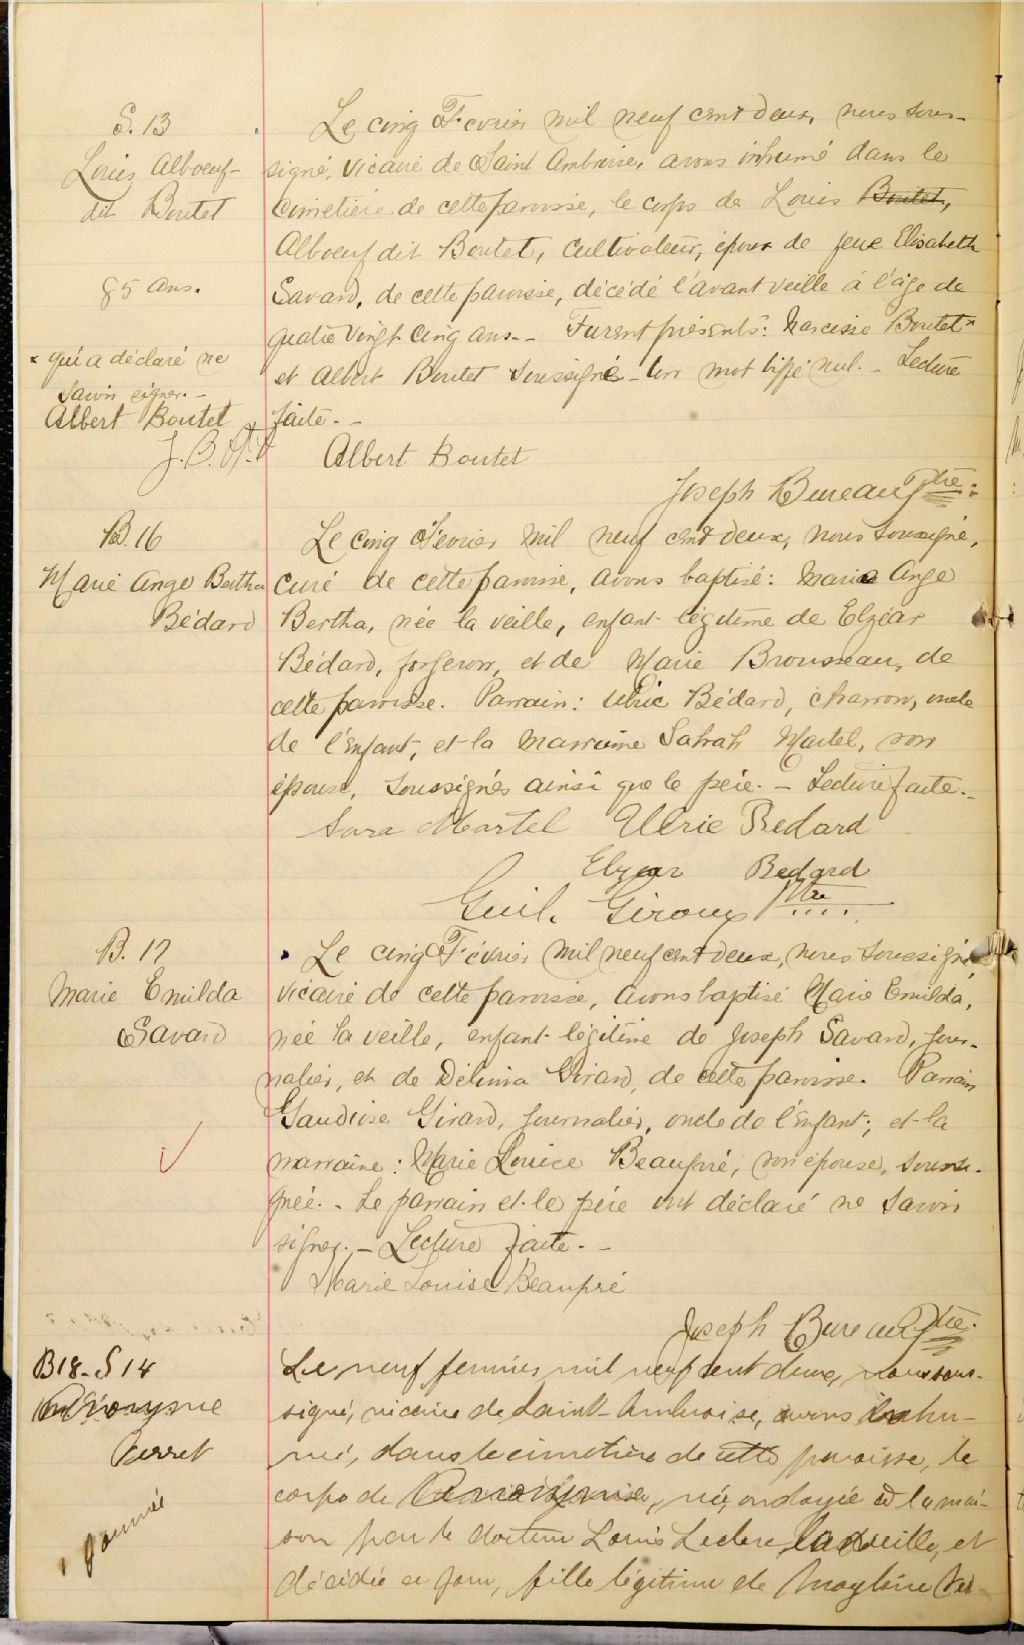 S. 13
Louis Alboeuf
dit Boutet
85 ans.
× qui a déclaré ne
savoir signer. -
Albert Boutet
J. B.
Le cinq Février mil neuf cent deux, nous sous-
signé, vicaire de Saint Ambroise, avons inhumé dans le
Cimetière de cette paroisse, le corps de Louis Boutet,
Alboeuf dit Boutet, cultivateur, époux de feue Elisabeth
Savard, de cette paroisse, décédé l'avant veille à l'âge de
quatre vingt cinq ans. - Furent présents: Narcisse Boutet ×
et Albert Boutet soussigné - Un mot biffé nul. - Lecture
faite. -
Albert Boutet
Joseph Bureau Ptre.
B. 16
Marie Ange Bertha
Bédard
Le cinq Février mil neuf cent deux, nous soussigné,
curé de cette paroisse, avons baptisé: Marie Ange
Bertha, née la veille, enfant légitime de Elzéar
Bédard, forgeron, et de Marie Brousseau, de
cette paroisse. Parrain: Ulric Bédard, charron, oncle
de l'enfant, et la marraine Sahrah Martel, son
épouse, soussignés ainsi que le père. - Lecture faite. -
Sara Martel Ulric Bedard
Elzear Bedard
Guil. Giroux Ptre
B. 17
Marie Emilda
Savard
Le cinq Février mil neuf cent deux, nous soussigné
vicaire de cette paroisse, avons baptisé Marie Emilda,
née la veille, enfant légitime de Joseph Savard, jour-
nalier, et de Délima Girard, de cette paroisse. Parrain
Gaudiose Girard, journalier, oncle de l'enfant; et la
marraine: Marie Louise Beaupré, son épouse, soussi-
gnée. - Le parrain et le père ont déclaré ne savoir
signer. - Lecture faite. -
Marie Louise Beaupré
Joseph Bureau Ptre.
B18 - S 14
Anonyme
Verret
Le neuf fevrier mil neuf cent deux, nous sous-
signé, vicaire de Saint-Ambroise, avons inhu-
mé, dans le cimetière de cette paroisse, le
corps de née, ondoyée à la mai-
son par le docteur Louis Leclerc, la veille, et
décédée ce jour, fille légitime de Ver-